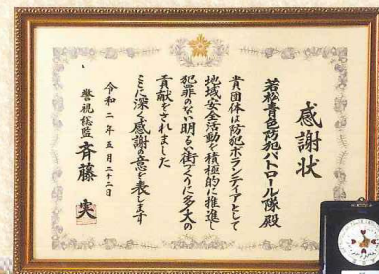 感謝状
若松青色防犯パトロール隊殿
貴団体は防犯ボランティアとして
地域安全活動を積極的に推進し
犯罪のない明るい街づくりに多大の
貢献をされました
ここに深く感謝の意を表します
令和二年五月二十二日
警視総監 斉藤 実